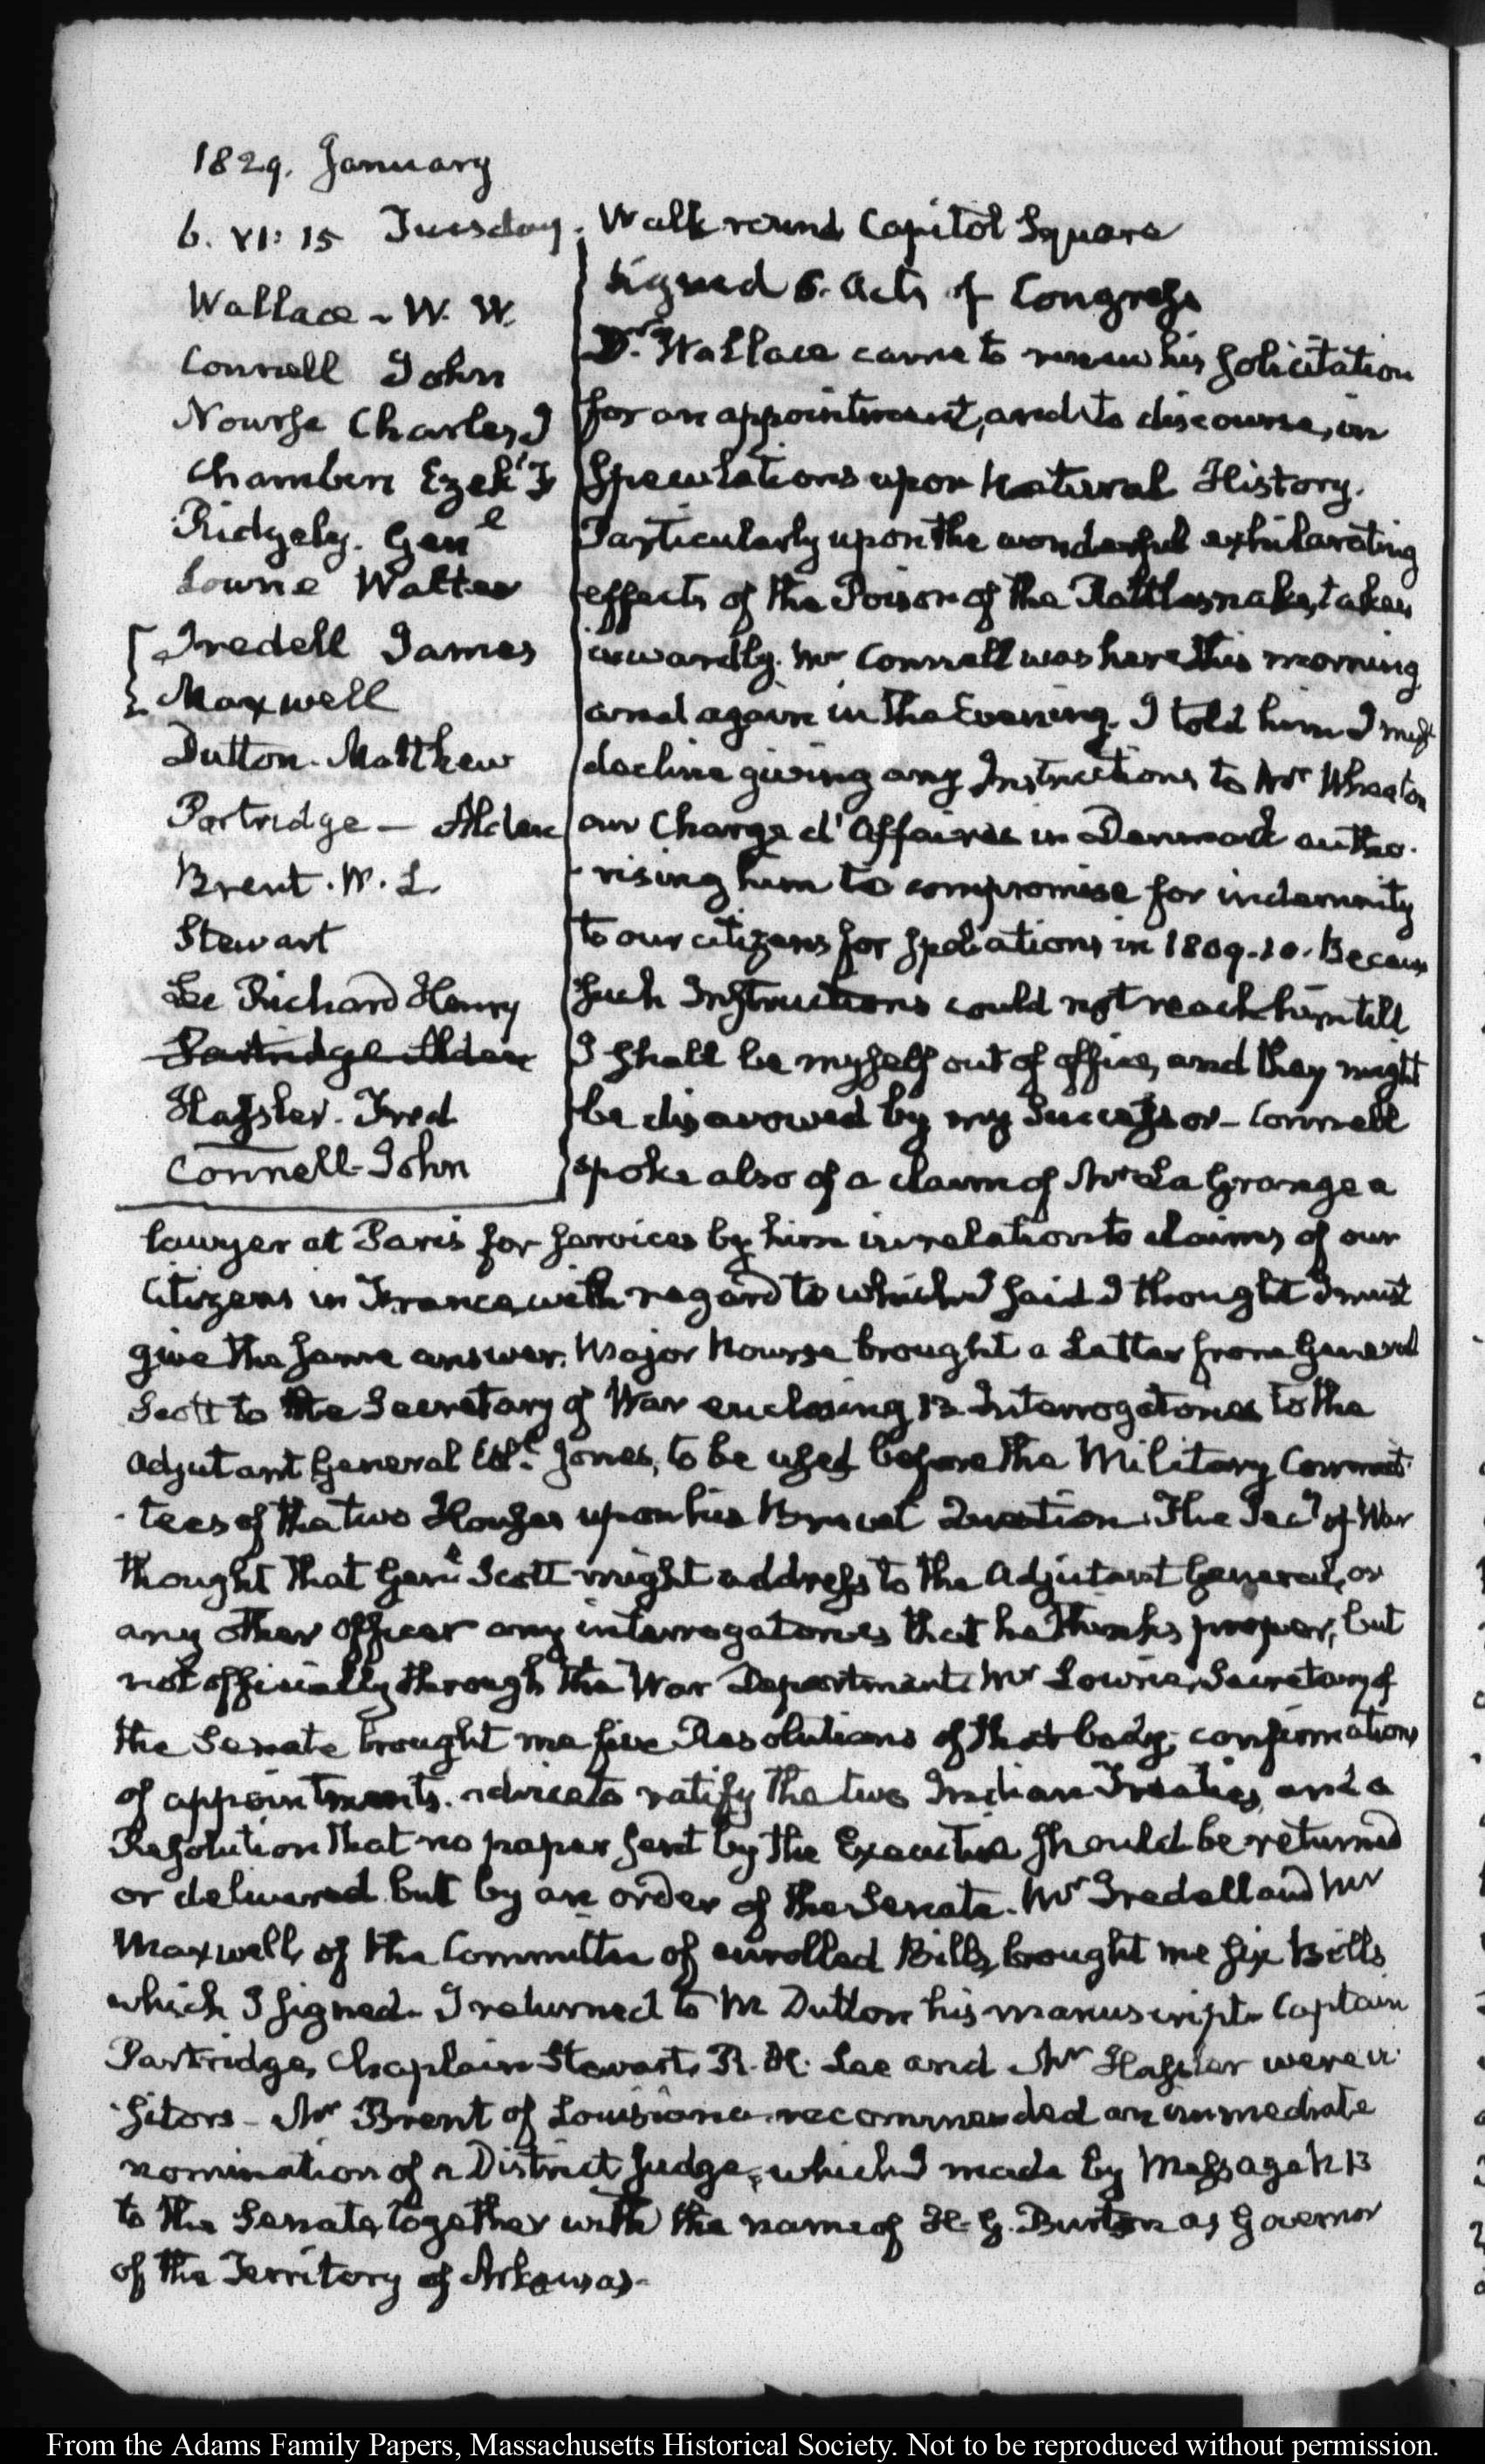 1829. January
6. VI: 15 Tuesday.
Wallace - W. W.
Connell John
Nourse Charles J
Chambers Ezek.l F
Ridgely. Genl
Lowrie Walter
Iredell James
Maxwell
Dutton. Matthew
Partridge — Alden
Brent. W. L.
Stewart
Lee Richard Henry
Partridge Alden
Hassler. Fred
Connell - John
Walk round Capitol Square
signed 6. Acts of Congress
Dr. Wallace came to renew his solicitation
for an appointment, and to discourse, in
speculations upon Natural History.
Particularly upon the wonderful exhilarating
effects of the Poison of the Rattlesnake, taken
inwardly. Mr Connell was here this morning
and again in the Evening. I told him I must
decline giving any Instructions to Mr Wheaton
our Charge d'Affaires in Denmark autho-
-rising him to compromise for indemnity
to our citizens for spoliations in 1809-10. Because
such Instructions could not reach him till
I shall be myself out of office, and they might
be disavowed by my Successor - Connell
spoke also of a claim of Mr La Grange a
lawyer at Paris for services by him in relation to claims of our
Citizens in France, with regard to which I said I thought I must
give the same answer. Major Nourse brought a Letter from General
Scott to the Secretary of War enclosing 13 Interrogatories to the
Adjutant General Coll. Jones, to be used before the Military Commit-
-tees of the two Houses upon his Brevet Question. The Secy of War
thought that Genl Scott might address to the Adjutant General, or
any other Officer any interrogatories that he thinks proper, but
not officially through the War Department. Mr Lowrie, Secretary of
the Senate brought me five Resolutions of that body; confirmations
of appointments. advice to ratify the two Indian Treaties, and a
Resolution that no paper sent by the Executive should be returned
or delivered but by an order of the Senate. Mr Iredell and Mr
Maxwell, of the Committee of enrolled Bills, brought me six Bills
which I signed. I returned to Mr Dutton his manuscript. Captain
Partridge, Chaplain Stewart, R. H. Lee and Mr Hassler were vi-
-sitors - Mr Brent of Louisiana recommended an immediate
nomination of a District Judge, which I made by Message N 13
to the Senate, together with the name of H. G. Burton as Governor
of the Territory of Arkansas.
From the Adams Family Papers, Massachusetts Historical Society. Not to be reproduced without permission.